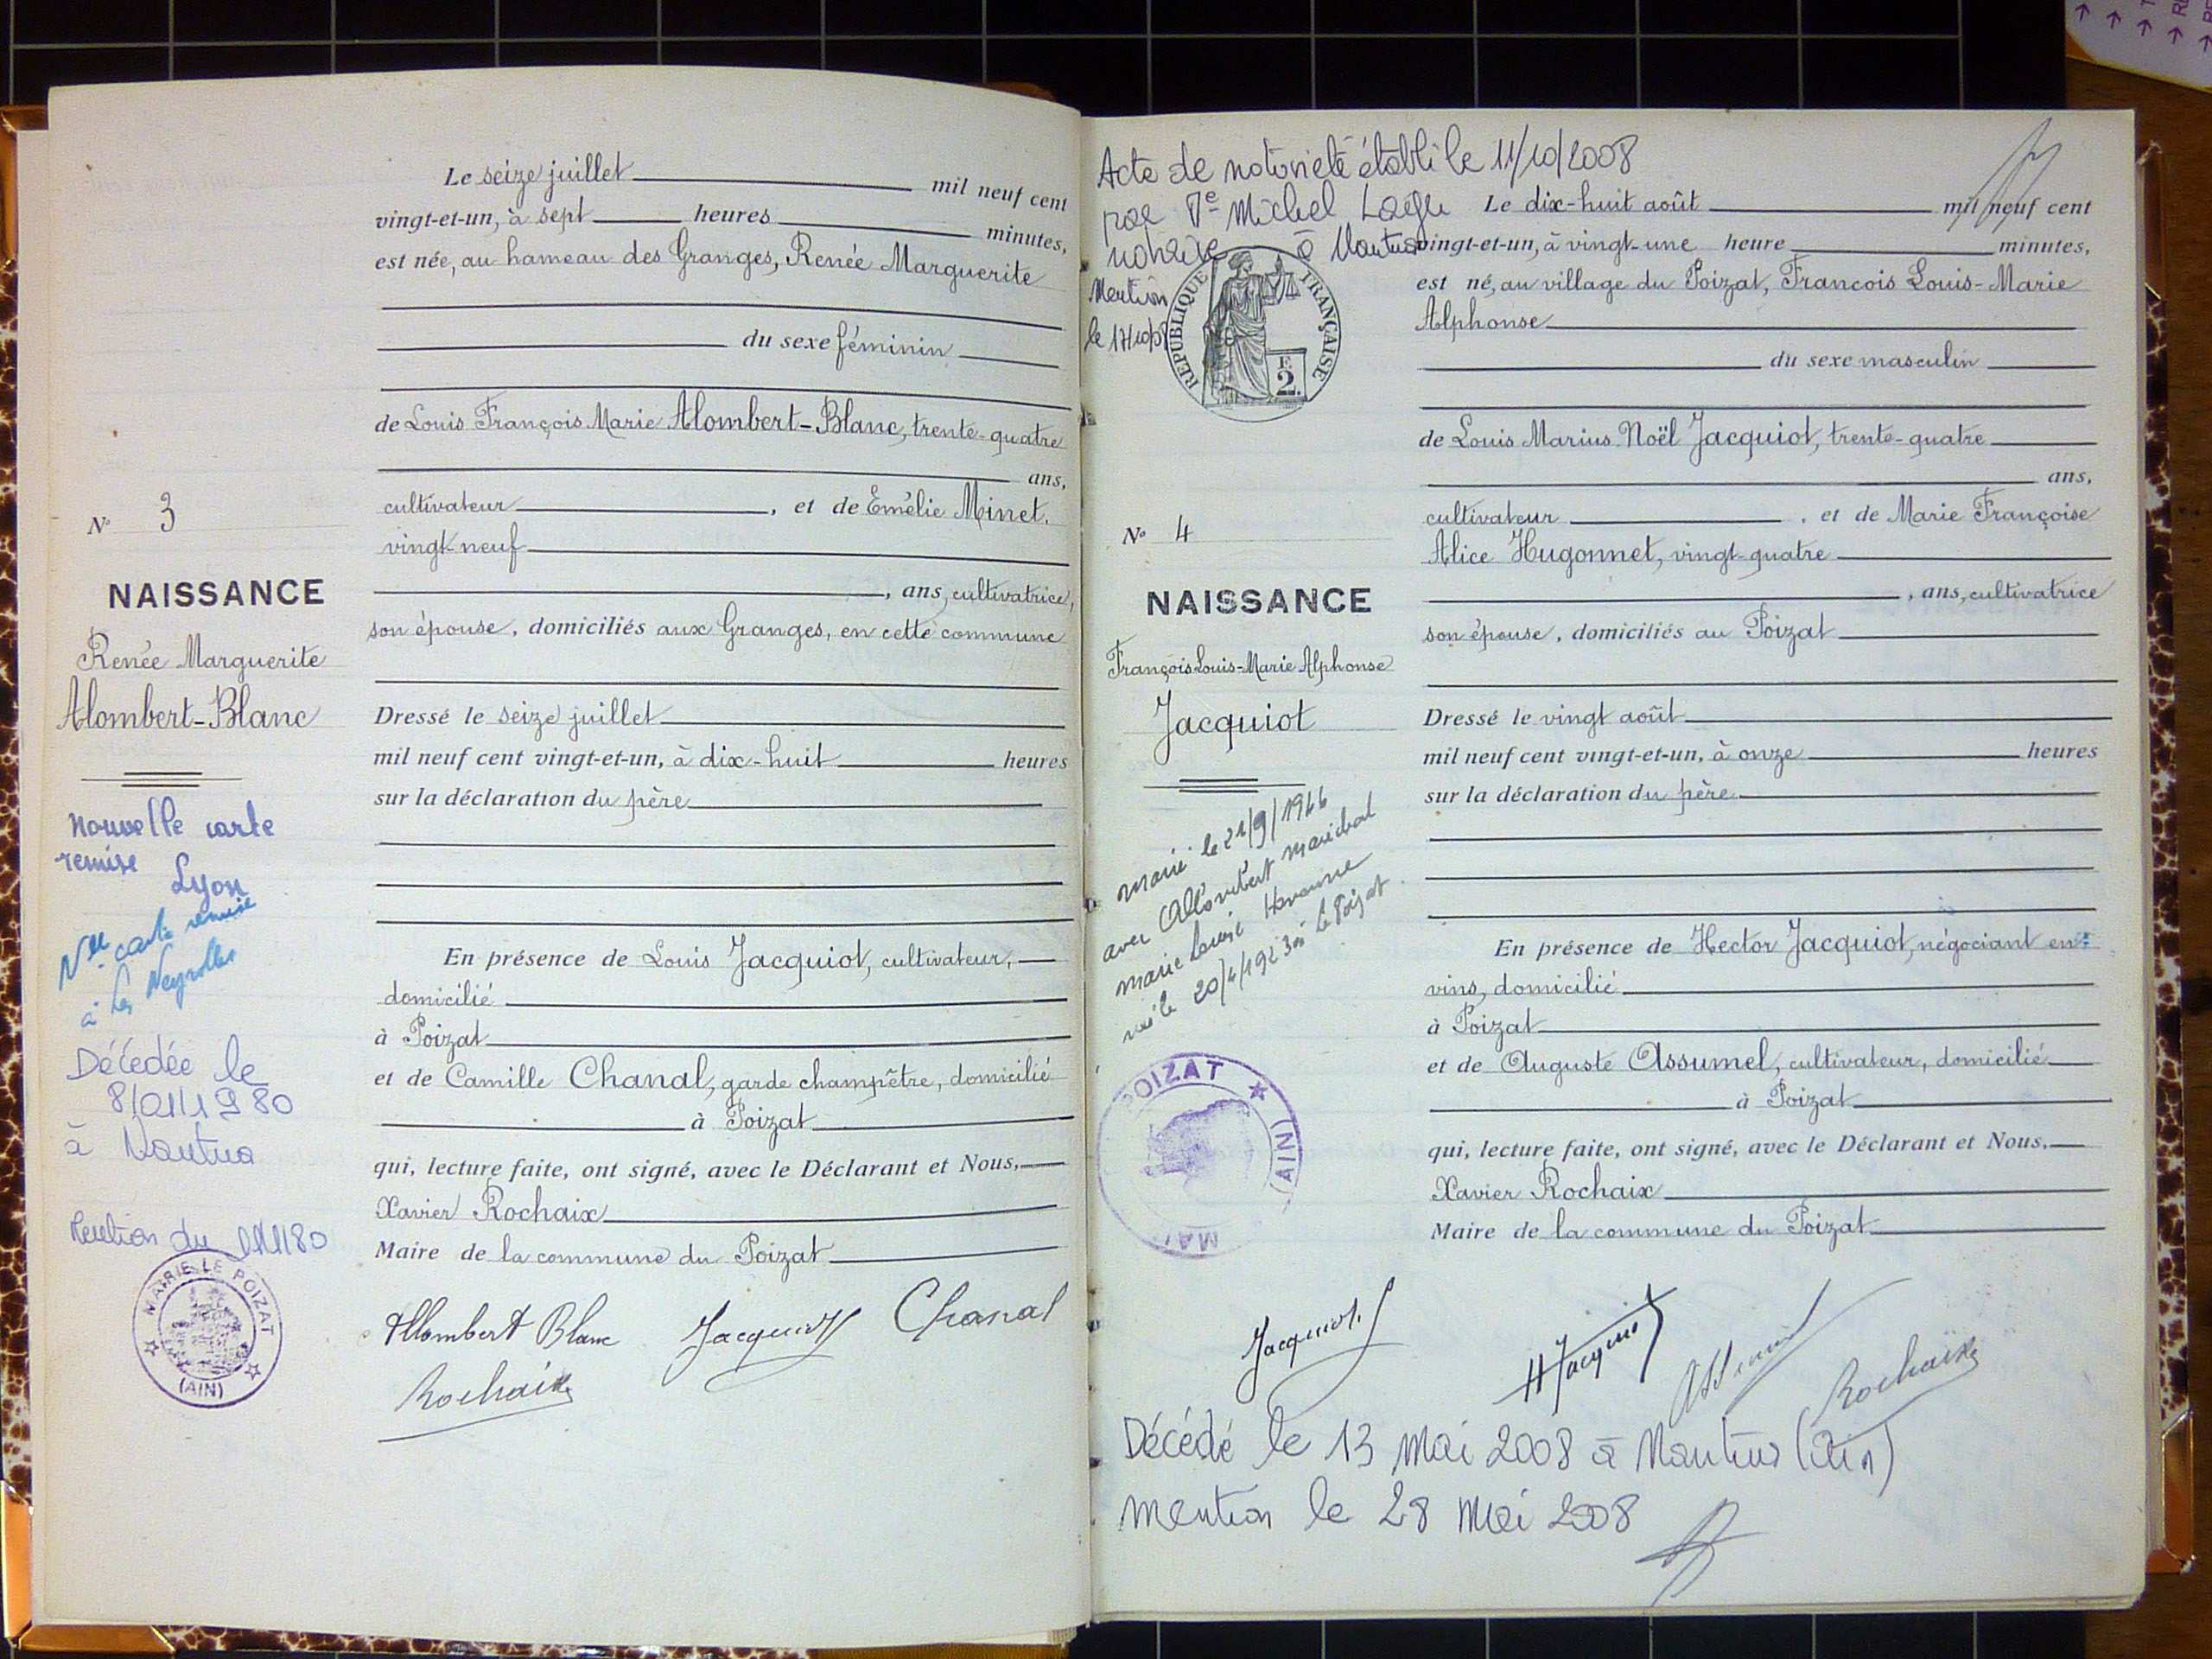 Le seize juillet mil neuf cent
vingt-et-un, à sept heures minutes,
est née, au hameau des Granges, Renée Marguerite
du sexe féminin
de Louis François Marie Alombert-Blanc, trente-quatre
ans,
cultivateur, et de Emélie Minet,
vingt-neuf
, ans, cultivatrice,
son épouse, domiciliés aux Granges, en cette commune
Dressé le seize juillet
mil neuf cent vingt-et-un, à dix-huit heures
sur la déclaration du père
En présence de Louis Jacquiot, cultivateur,
domicilié
à Poizat
et de Camille Chanal, garde champêtre, domicilié
à Poizat
qui, lecture faite, ont signé, avec le Déclarant et Nous,
Xavier Rochaix
Maire de la commune du Poizat
Allombert Blanc Jacquiot Chanal
Rochaix
N° 3
NAISSANCE
Renée Marguerite
Alombert-Blanc
Nouvelle carte
remise
Lyon
Nlle carte remise
à Les Neyrolles
Décédée le
8/01/1980
à Nantua
Mention du
MAIRIE LE POIZAT
(AIN)
Acte de notoriété établi le 11/10/2008
par Me Michel
notaire à Nantua
Mention
le
REPUBLIQUE FRANÇAISE
F.
2.
N° 4
NAISSANCE
François Louis-Marie Alphonse
Jacquiot
marié le 21/9/1944
avec Allombert marichal
marie Louise
née le 20/4/1923 à Le Poizat
POIZAT (AIN)
MAI
Le dix-huit août mil neuf cent
vingt-et-un, à vingt-une heure minutes,
est né, au village du Poizat, Francois Louis-Marie
Alphonse
du sexe masculin
de Louis Marius Noël Jacquiot, trente-quatre
ans,
cultivateur, et de Marie Françoise
Alice Hugonnet, vingt-quatre
, ans, cultivatrice
son épouse, domiciliés au Poizat
Dressé le vingt août
mil neuf cent vingt-et-un, à onze heures
sur la déclaration du père
En présence de Hector Jacquiot, négociant en
vins, domicilié
à Poizat
et de Auguste Assumel, cultivateur, domicilié
à Poizat
qui, lecture faite, ont signé, avec le Déclarant et Nous,
Xavier Rochaix
Maire de la commune du Poizat
Jacquiot. H Jacquiot Assumel Rochaix
Décédé le 13 Mai 2008 à Nantua (Ain)
mention le 28 Mai 2008